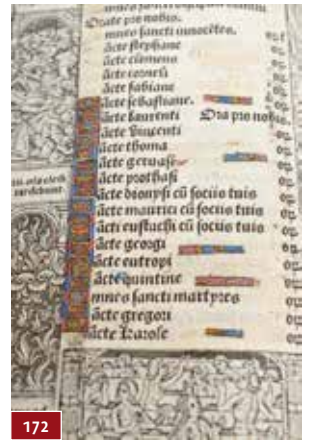 Orate pro nobis.
mnes sancti innocētes. op
ācte stephane op
ācte clemens op
ācte corneli op
ācte fabiane
ācte sebastiane.
ācte laurenti Ora pro nobis.
ācte vincenti op
ācte thoma op
ācte geruasi op
ācte prothasi op
ācte dionysi cū sociis tuis op
ācte maurici cū sociis tuis op
ācti eustachi cū sociis tuis op
ācte georgi op
ācte eutropi op
ācte quintine op
mnes sancti martyres op
ācte gregori op
ācte op
172